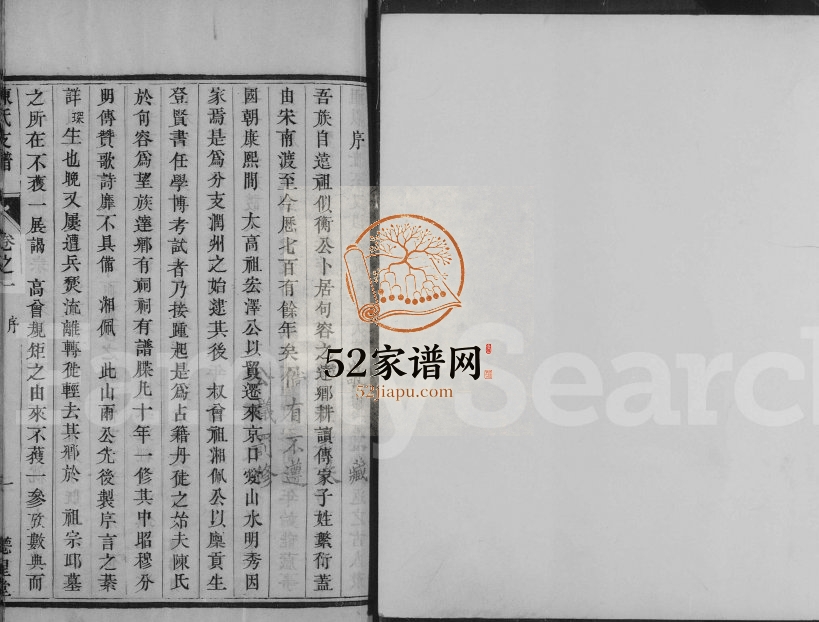 序
吾族自遠祖似衡公卜居句容之達鄉耕讀傳家子姓繁衍蓋
由宋南渡至今厯七百有餘年矣
國朝康熙間 太高祖宏澤公以貿遷來京口愛山水明秀因
家焉是爲分支潤州之始遷其後 叔曾祖湘佩公以廩貢生
登賢書任學博考試者乃接踵起是爲占籍丹徒之始夫陳氏
於句容爲望族達鄉有祠祠有譜牒凡十年一修其中昭穆分
明傳贊歌詩靡不具備 湘佩 此山兩公先後製序言之綦
詳琛生也晚又屢遭兵燹流離轉徙輕去其鄉於 祖宗邱墓
之所在不獲一展謁 高曾規矩之由來不獲一參攷數典而
陳氏支譜
卷之一
序
一
52家谱网
52jiapu.com
Family Search